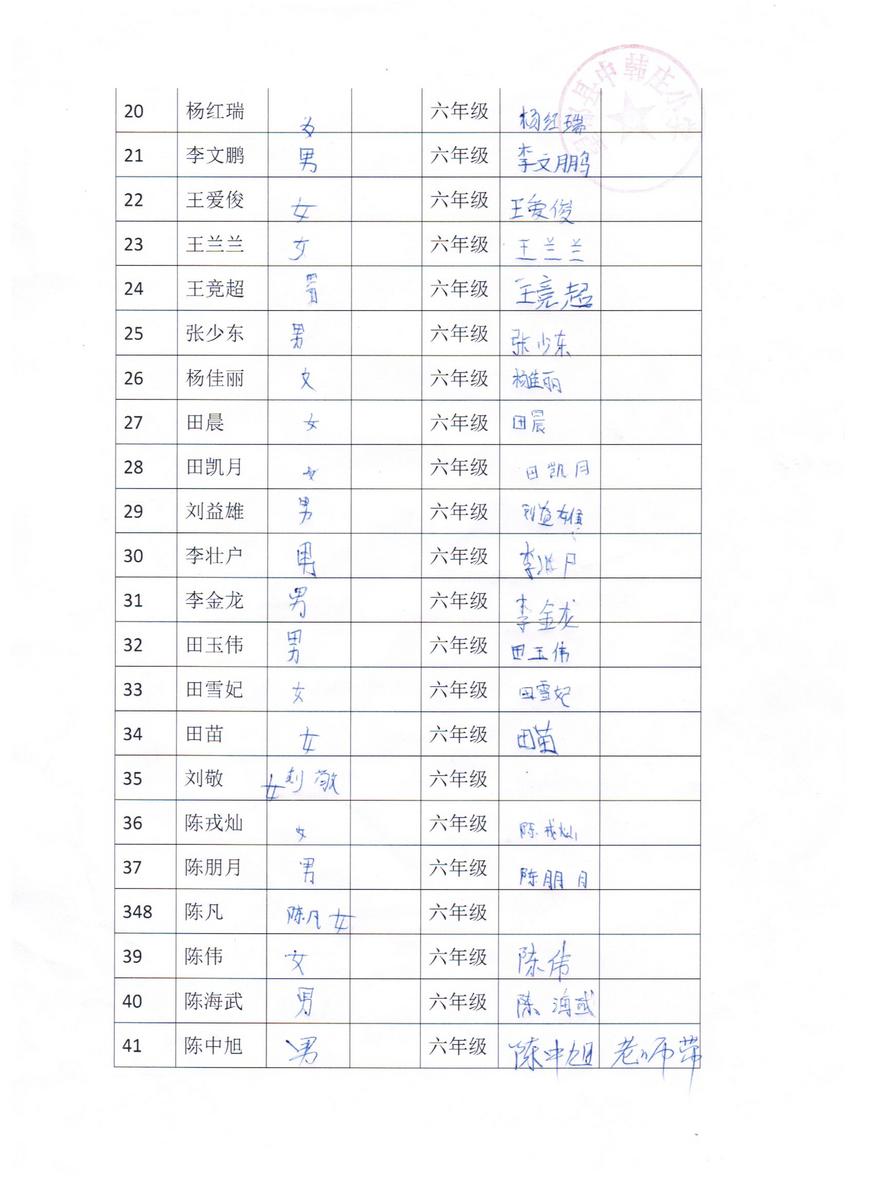 县中韩庄小学
20 杨红瑞 女 六年级 杨红瑞
21 李文鹏 男 六年级 李文鹏
22 王爱俊 女 六年级 王爱俊
23 王兰兰 女 六年级 王兰兰
24 王竞超 男 六年级 王竞超
25 张少东 男 六年级 张少东
26 杨佳丽 女 六年级 杨佳丽
27 田晨 女 六年级 田晨
28 田凯月 女 六年级 田凯月
29 刘益雄 男 六年级 刘益雄
30 李壮户 男 六年级 李壮户
31 李金龙 男 六年级 李金龙
32 田玉伟 男 六年级 田玉伟
33 田雪妃 女 六年级 田雪妃
34 田苗 女 六年级 田苗
35 刘敬 女 刘敬 六年级
36 陈戎灿 女 六年级 陈戎灿
37 陈朋月 男 六年级 陈朋月
348 陈凡 陈凡 女 六年级
39 陈伟 女 六年级 陈伟
40 陈海武 男 六年级 陈海武
41 陈中旭 男 六年级 陈中旭 老师带